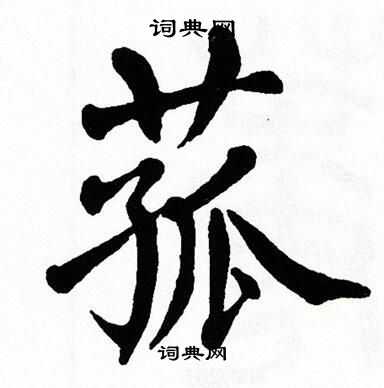 词典网
菰
词典网